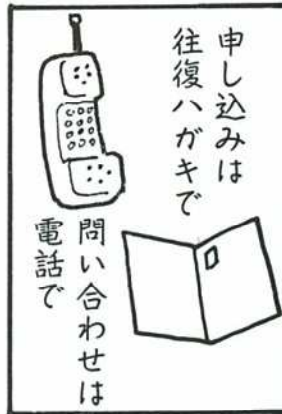 申し込みは
往復ハガキで
問い合わせは
電話で